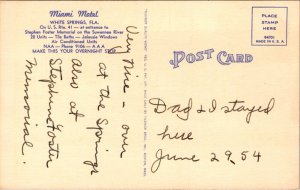 Miami Motel
WHITE SPRINGS, FLA.
On U. S. Rte. 41 — at entrance to
Stephen Foster Memorial on the Suwannee River
20 Units — Tile Baths — Jalousie Windows
Air Conditioned Units
NAA — Phone 9106 — AAA
MAKE THIS YOUR OVERNIGHT STOP
POST CARD
PLACE
STAMP
HERE
MADE IN U. S. A.
Very nice - over
at the Springs
also at
Stephen Foster
Memorial.
Dad & I stayed
here
June 29 54